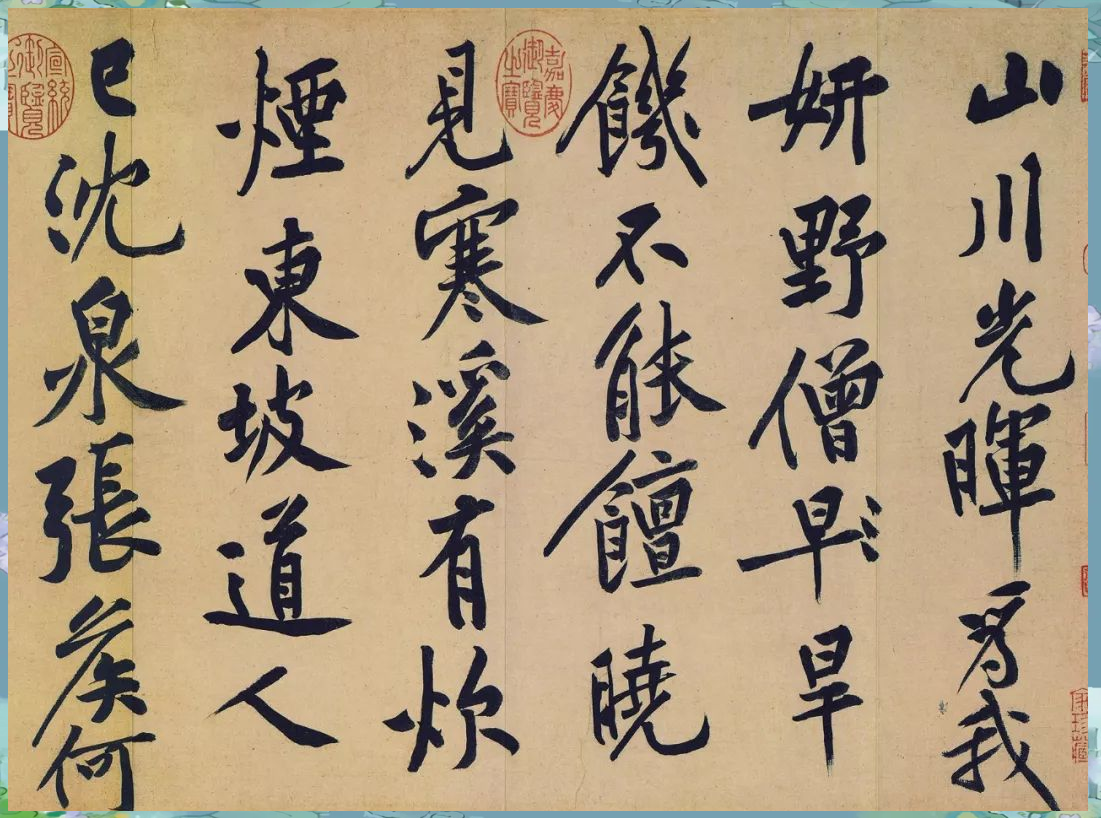 山川光暉爲我
妍野僧早旱
饑不能饘曉
見寒溪有炊
煙東坡道人
已沈泉張侯何
嘉慶御覽之寶
宣統御覽之寶